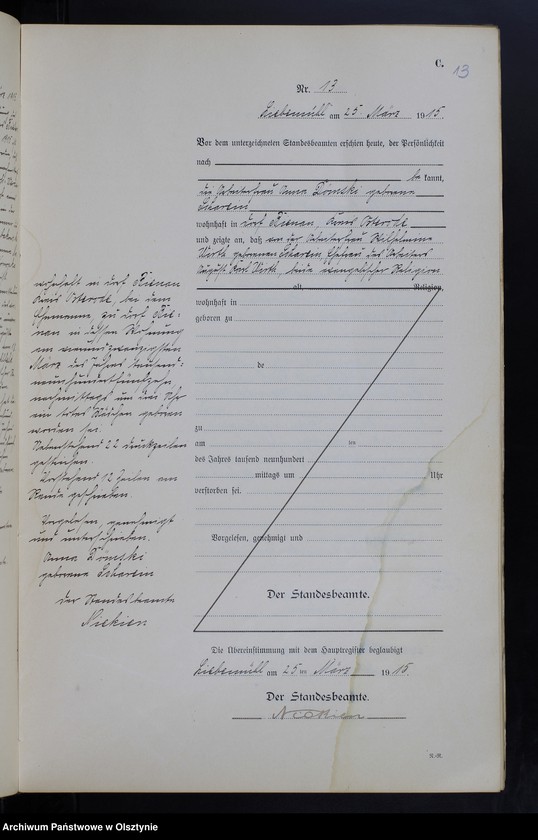 C.
13
Nr. 13
Liebemühl am 25 März 1915.
Vor dem unterzeichneten Standesbeamten erschien heute, der Persönlichkeit
nach
be kannt,
die Arbeiterfrau Anna Domski geborene
Scharein,
wohnhaft in Dorf Bienau, Kreis Osterode
und zeigte an, daß von der Arbeiterfrau Wilhelmine
Wirth geborenen Scharein, Ehefrau des Arbeiters
August Karl Wirth, beide evangelischer Religion
alt, Religion,
wohnhaft in Dorf Bienau
Kreis Osterode, bei dem
Ehemanne, zu Dorf Bie-
nau in dessen Wohnung
am neunundzwanzigsten
März des Jahres tausend-
neunhundertfünfzehn
nachmittags um drei Uhr
ein totes Mädchen geboren
worden sei.
Nebenstehend 22 Druckzeilen
gestrichen.
Vorstehend 12 Zeilen am
Rande geschrieben.
Vorgelesen, genehmigt
und unterschrieben.
Anna Domski
geborene Scharein
Der Standesbeamte
wohnhaft in
geboren zu
de
zu
am ten
des Jahres tausend neunhundert
mittags um Uhr
verstorben sei.
Vorgelesen, genehmigt und
Der Standesbeamte.
Die Übereinstimmung mit dem Hauptregister beglaubigt
Liebemühl am 25 ten März 1915.
Der Standesbeamte.
Archiwum Państwowe w Olsztynie